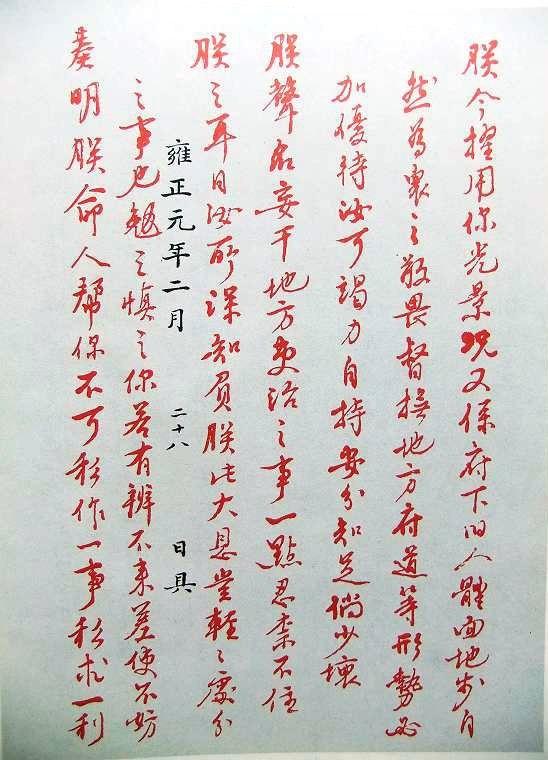 朕今擢用你光景況又係府下旧人體面地步自
然為衆之敬畏督撫地方府道等形勢必
加優待汝可竭力自持安分知足倘少壞
朕聲名妄干地方吏治之事一點忍柰不住
朕之耳目汝所深知負朕此大恩豈輕々處分
雍正元年二月 二十八 日具
之事也勉之慎之你若有辦不来差使不妨
奏明朕命人幫你不可私作一事私求一利